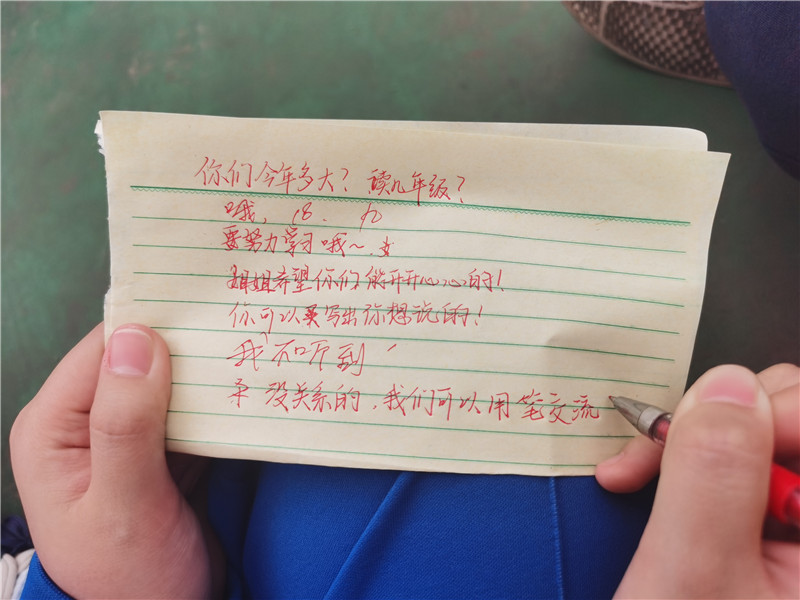 你们今年多大？读几年级？
哦，18. 九
要努力学习哦～.
姐姐希望你们能开开心心的！
你可以写出你想说的！
我不听到
没关系的，我们可以用笔交流